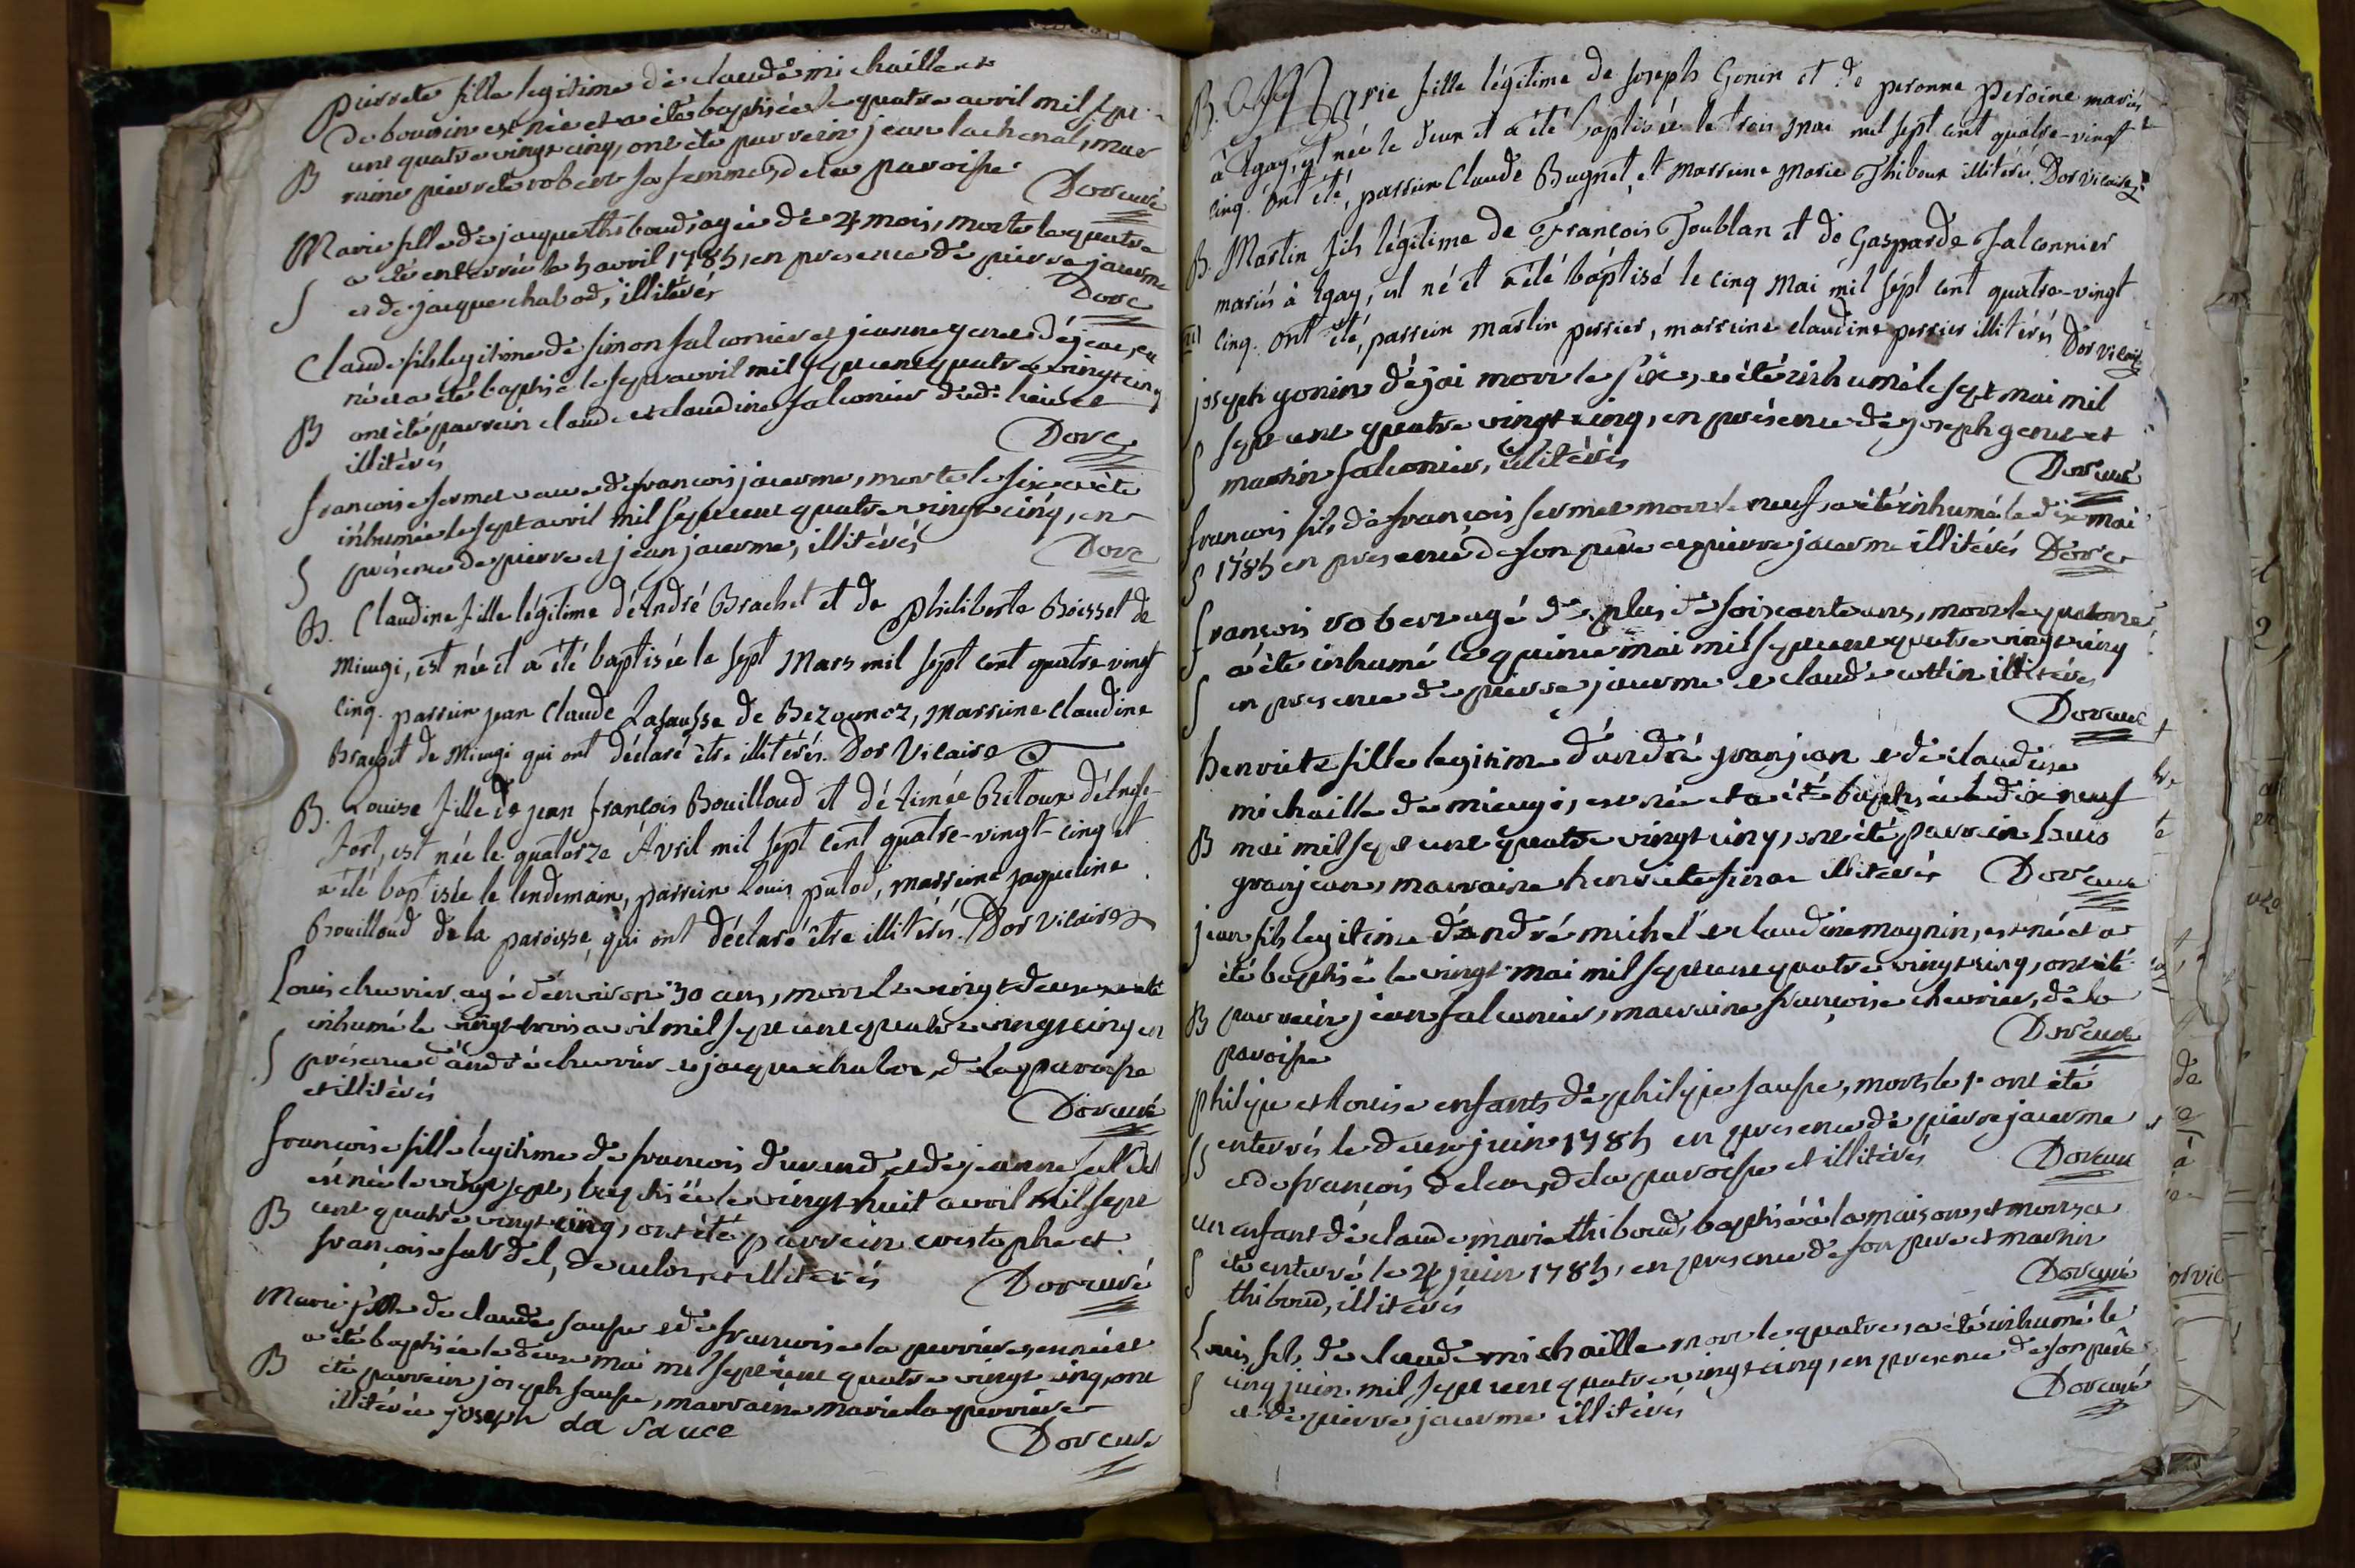 Pierrete fille legitime de claude michaille et
de bouvin est née et a été baptisée le quatre avril mil sept
B cent quatre vingt cinq, ont été parrein jean lachenal, mar
raine pierrete robert sa femme, de la paroisse
Dor curé
Marie fille de jacque thiboud, agée de 4 mois, morte le quatre
a été enterrée le 5 avril 1785, en presence de pierre jacerme
S et de jacque chabod, illitéres
Dor c
Claude fils legitime de simon falconier et jeanne genet déjeai, est
né et a été baptisé le sept avril mil sept cent quatre vingt cinq
B ont été parrein claude et claudine falconier dudi lieu et
illitérés
Dor c
francoise fermet veuve de francois jacerme, morte le six a été
inhumée le sept avril mil sept cent quatre vingt cinq, en
S présence de pierre et jean jacerme, illitérés
Dor c
B. Claudine fille légitime d'André Brachet et de Philiberte Boisset de
Mieugi, est née et a été baptisée le sept Mars mil sept cent quatre-vingt
cinq. parrein jean Claude Lasausse de Bezonnez, marreine claudine
Brachet de Mieugi qui ont déclaré être illitérés. Dor Vicaire
B. Louise fille de jean françois Bouilloud et d'Aimée Ritoux
fort, est née le quatorze Avril mil sept cent quatre-vingt-cinq et
a été baptisée le lendemain, parrein Louis putod, marreine jaqueline
Bouilloud de la paroisse, qui ont déclaré être illitérés. Dor Vicaire
Louis chevrier agé d'environ 30 ans, mort le vingt deux, a été
inhumé le vingt trois avril mil sept cent quatre vingt cinq en
S présence d'andré chevrier et jacque chabod, de la paroisse
et illitérés
Dor curé
francoise fille legitime de francois durand et de jeanne
est née le vingt sept, baptisée le vingt huit avril mil sept
B cent quatre vingt cinq, ont été parrein cristophe et
françoise de culoz, et illiterés
Dor curé
Marie fille de claude sausse et de francoise la perrière, est née et
a été baptisée le deux mai mil sept cent quatre vingt cinq, ont
B été parrein joseph sausse, marraine marie la perrière
illitérée joseph da sauce
Dor curé
B. Marie fille légitime de joseph Gonin et de peronne peroine mariés
à Egay, est née le deux et a été baptisée le trois mai mil sept cent quatre-vingt
cinq. ont été, parrein Claude Bugnet, et marreine Marie Thiboux illitérés. Dor Vicaire
B. Martin fils légitime de François Joublan et de Gasparde Falconnier
mariés à Egay, est né et a été baptisé le cinq Mai mil sept cent quatre-vingt
cinq. ont été, parrein martin perrier, marreine claudine perrier illitérés Dor Vicaire
joseph gonin déjai mort le six, a été inhumé le sept mai mil
sept cent quatre vingt cinq, en présence de joseph genet et
S martin falconier, illitérés
Dor curé
francois fils de francois fermet mort le neuf, a été inhumé le dix mai
S 1785 en presence de son pere et pierre jacerme illiterés Dor c
françois robert agé de plus de soixante ans, mort le quatorze
a été inhumé le quinze mai mil sept cent quatre vingt cinq
S en presence de pierre jacerme et claude cottin illitérés
Dor curé
henriete fille legitime d'andré granjean et de claudine
michaille de mieugi, est née et a été baptisée le dix neuf
B mai mil sept cent quatre vingt cinq, ont été parrein louis
granjean, marraine henriete illiterés Dor curé
jean fils legitime d'andré michel et claudine magnin, est né et a
été baptisé le vingt mai mil sept cent quatre vingt cinq, ont été
B parrein jean falconier, marraine françoise chevrier, de la
paroisse
Dor curé
philipe et louise enfants de philipe sausse, morts le 1er ont été
SS enterrés le deux juin 1785 en presence de pierre jacerme
et de francois de la paroisse et illitérés
Dor curé
un enfant de claude marie thiboud, baptisé à la maison, et mort, a
S été enterré le 4 juin 1785, en presence de son pere et martin
thiboud, illitérés
Dor curé
Louis fils de claude michaille mort le quatre, a été inhumé le
S cinq juin mil sept cent quatre vingt cinq, en presence de son père
et de pierre jacerme illitérés
Dor curé